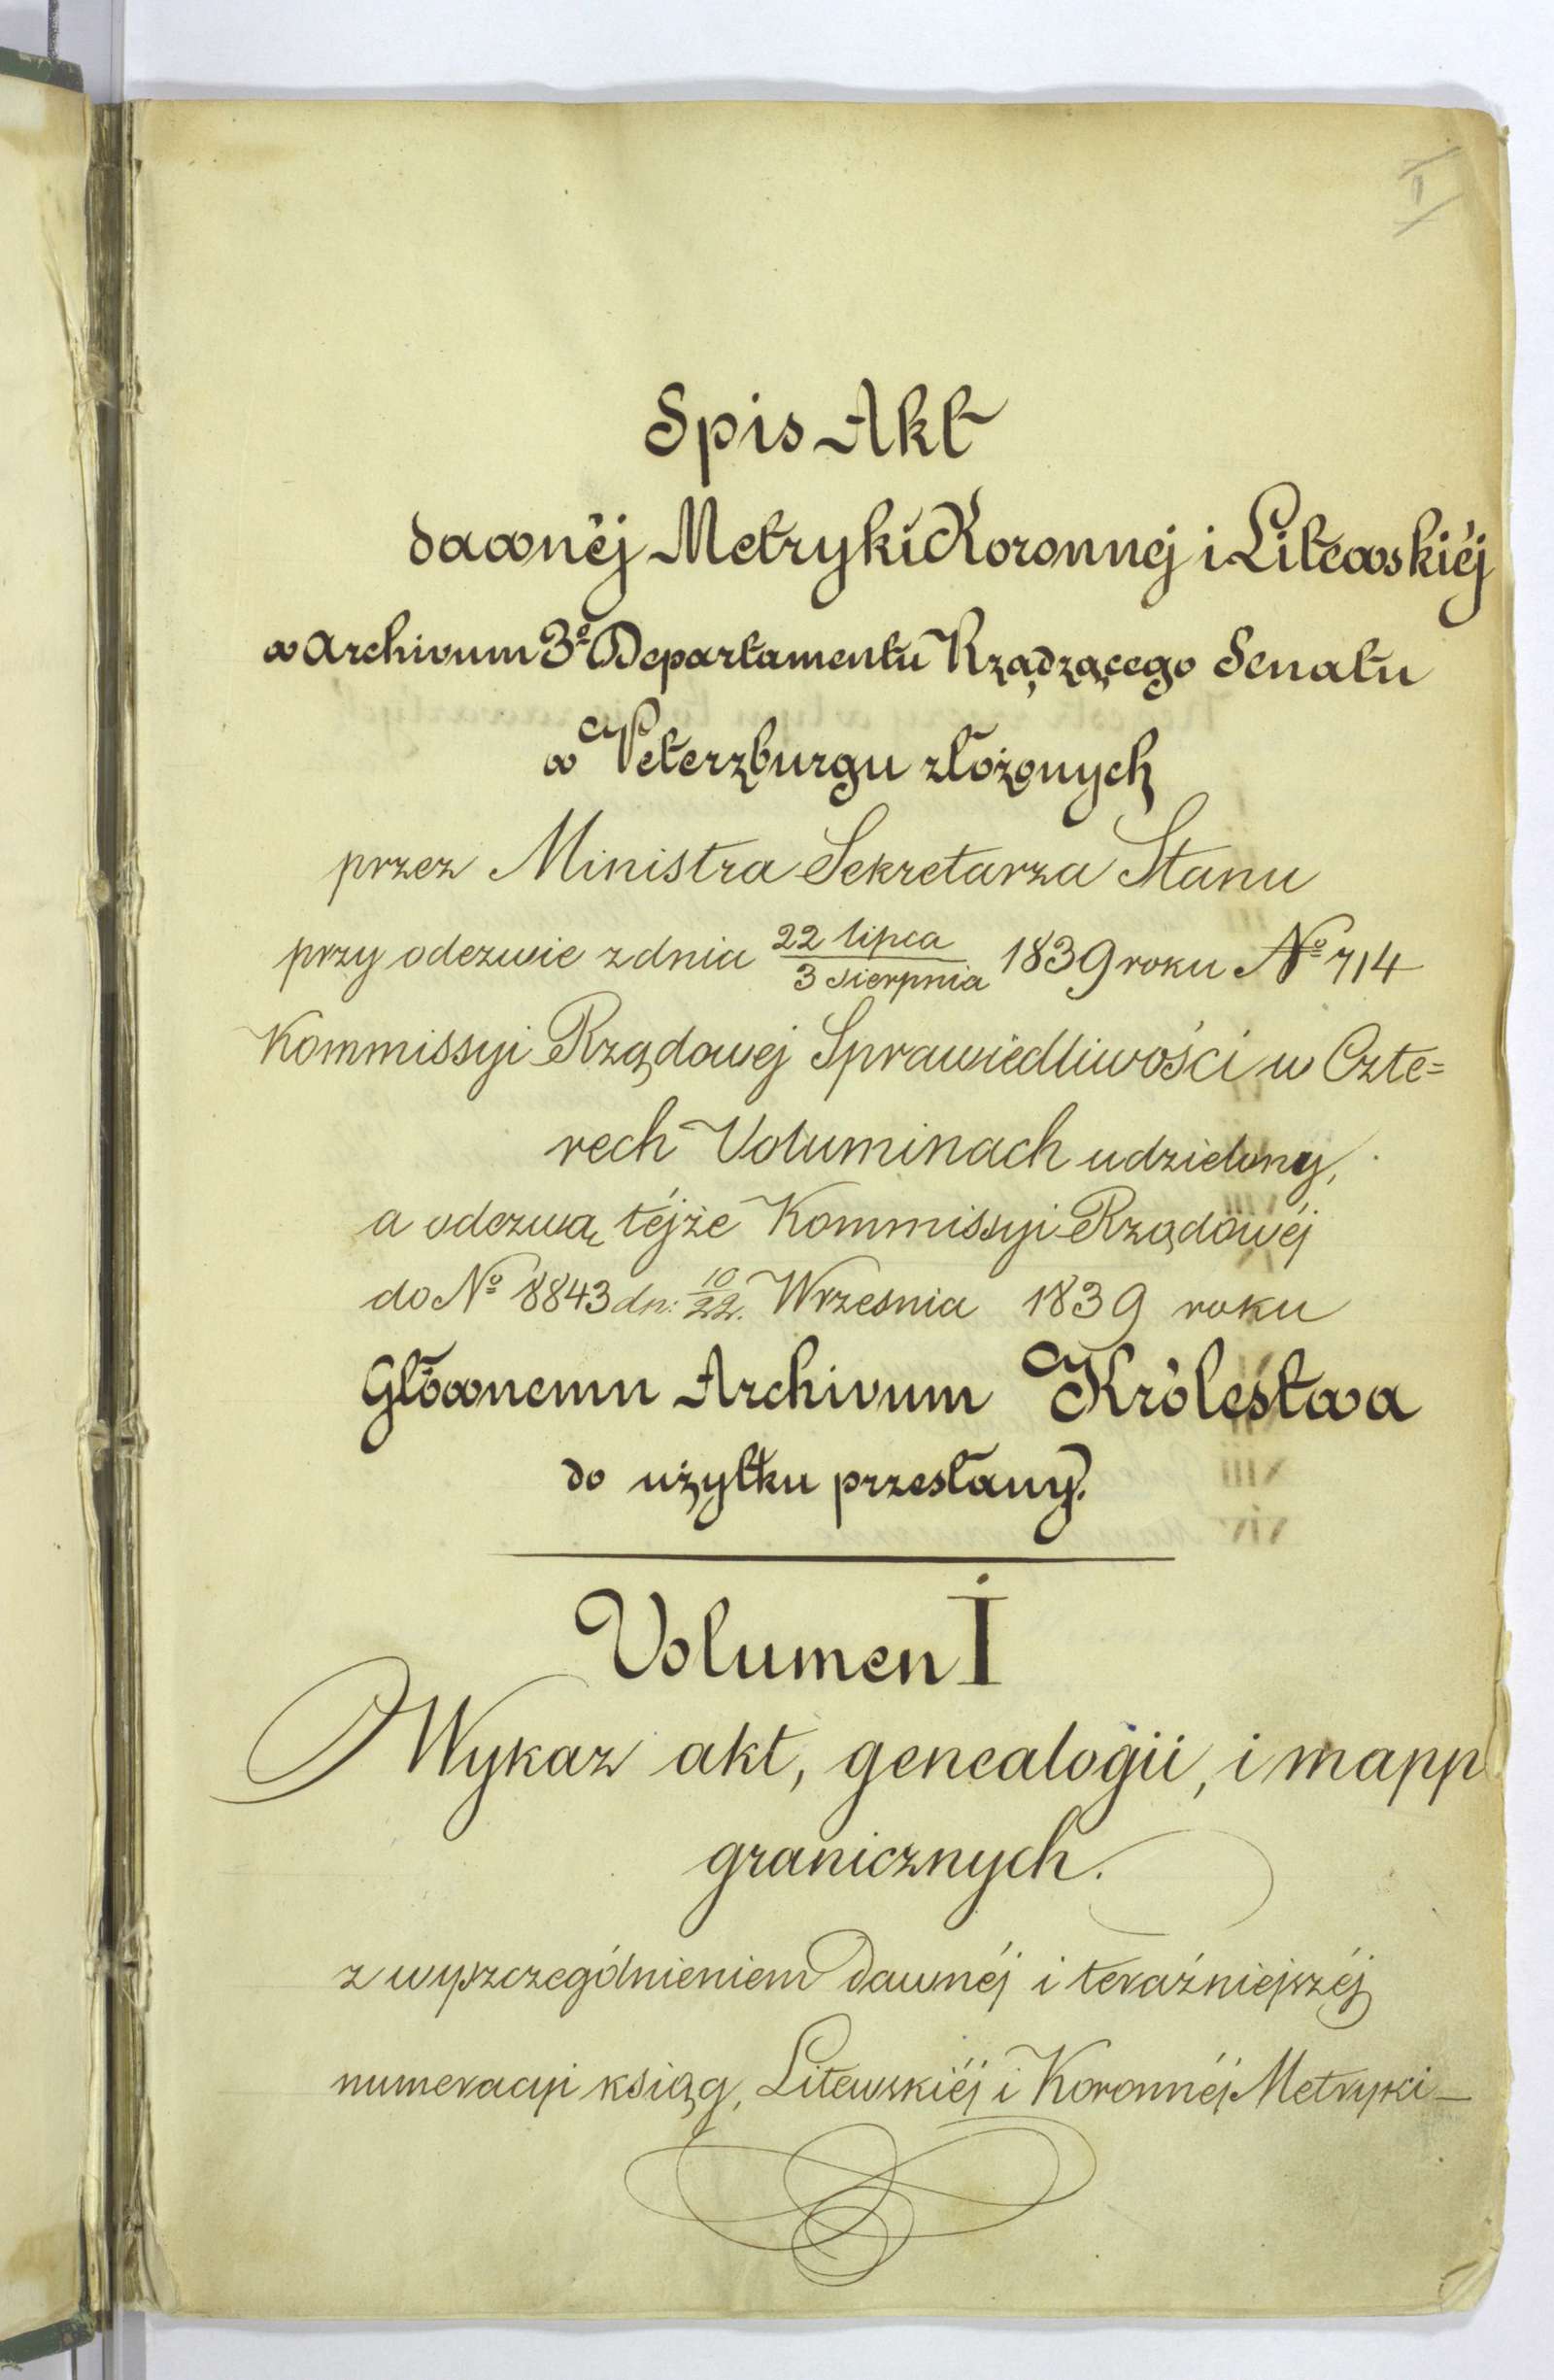 I
Spis Akt
dawnéj Metryki Koronnej i Litewskiéj
w Archivum 3º Departamentu Rządzącego Senatu
w Peterzburgu złożonych
przez Ministra Sekretarza Stanu
przy odezwie z dnia 22 lipca / 3 sierpnia 1839 roku Nº 714
Kommissyi Rządowej Sprawiedliwości w Czte=
rech Voluminach udzielony,
a odezwą téjże Kommissyi Rządowéj
do Nº 8843 dn: 10/22. Wrzesnia 1839 roku
Głównemu Archivum Królestwa
do użytku przesłany.
Volumen I
Wykaz akt, genealogii, i mapp
granicznych.
z wyszczególnieniem dawnéj i teraźniejszéj
numeracyi ksiąg, Litewskiéj i Koronnéj Metryki —